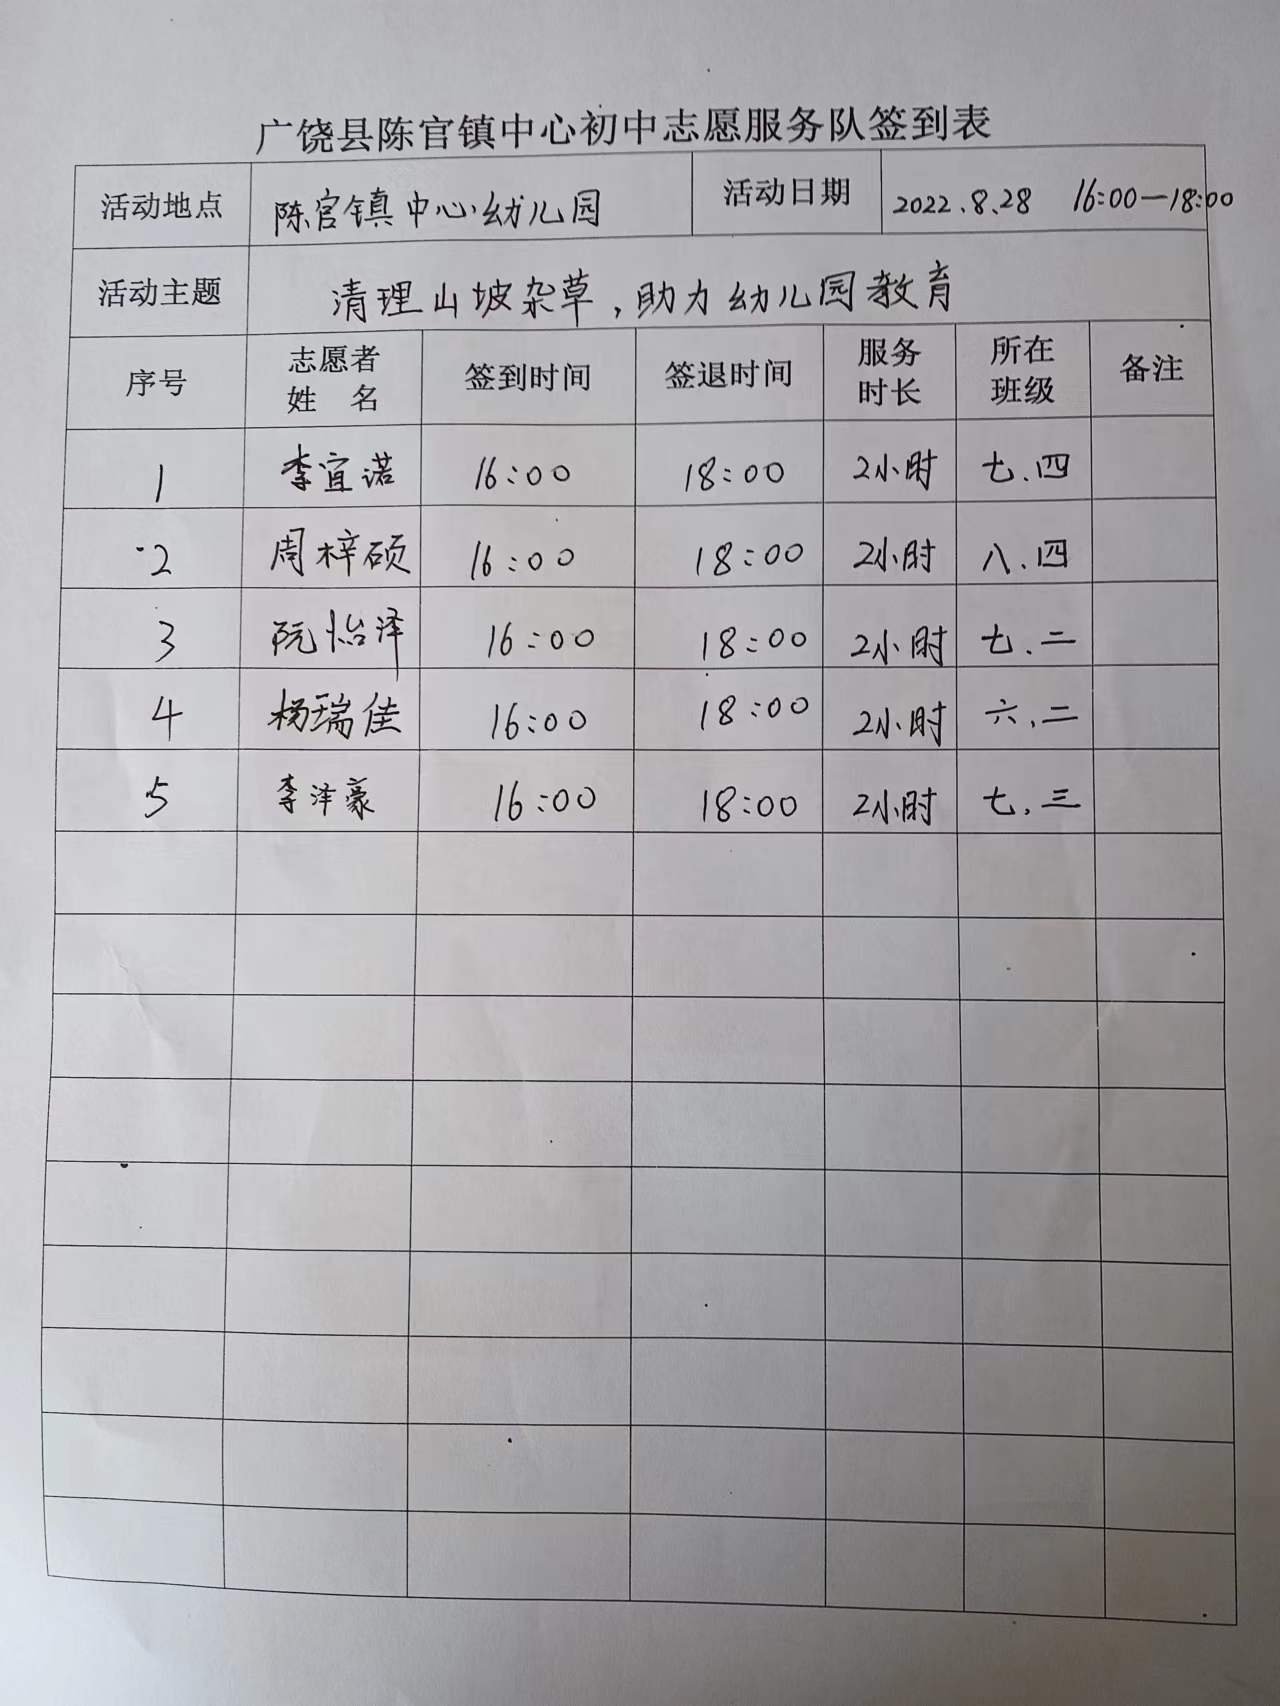 广饶县陈官镇中心初中志愿服务队签到表
活动地点 陈官镇中心幼儿园 活动日期 2022.8.28 16:00—18:00
活动主题 清理山坡杂草，助力幼儿园教育
序号 志愿者姓 名 签到时间 签退时间 服务时长 所在班级 备注
1 李宜诺 16:00 18:00 2小时 七.四
2 周梓硕 16:00 18:00 2小时 八.四
3 阮怡泽 16:00 18:00 2小时 七.二
4 杨瑞佳 16:00 18:00 2小时 六.二
5 李泽豪 16:00 18:00 2小时 七.三